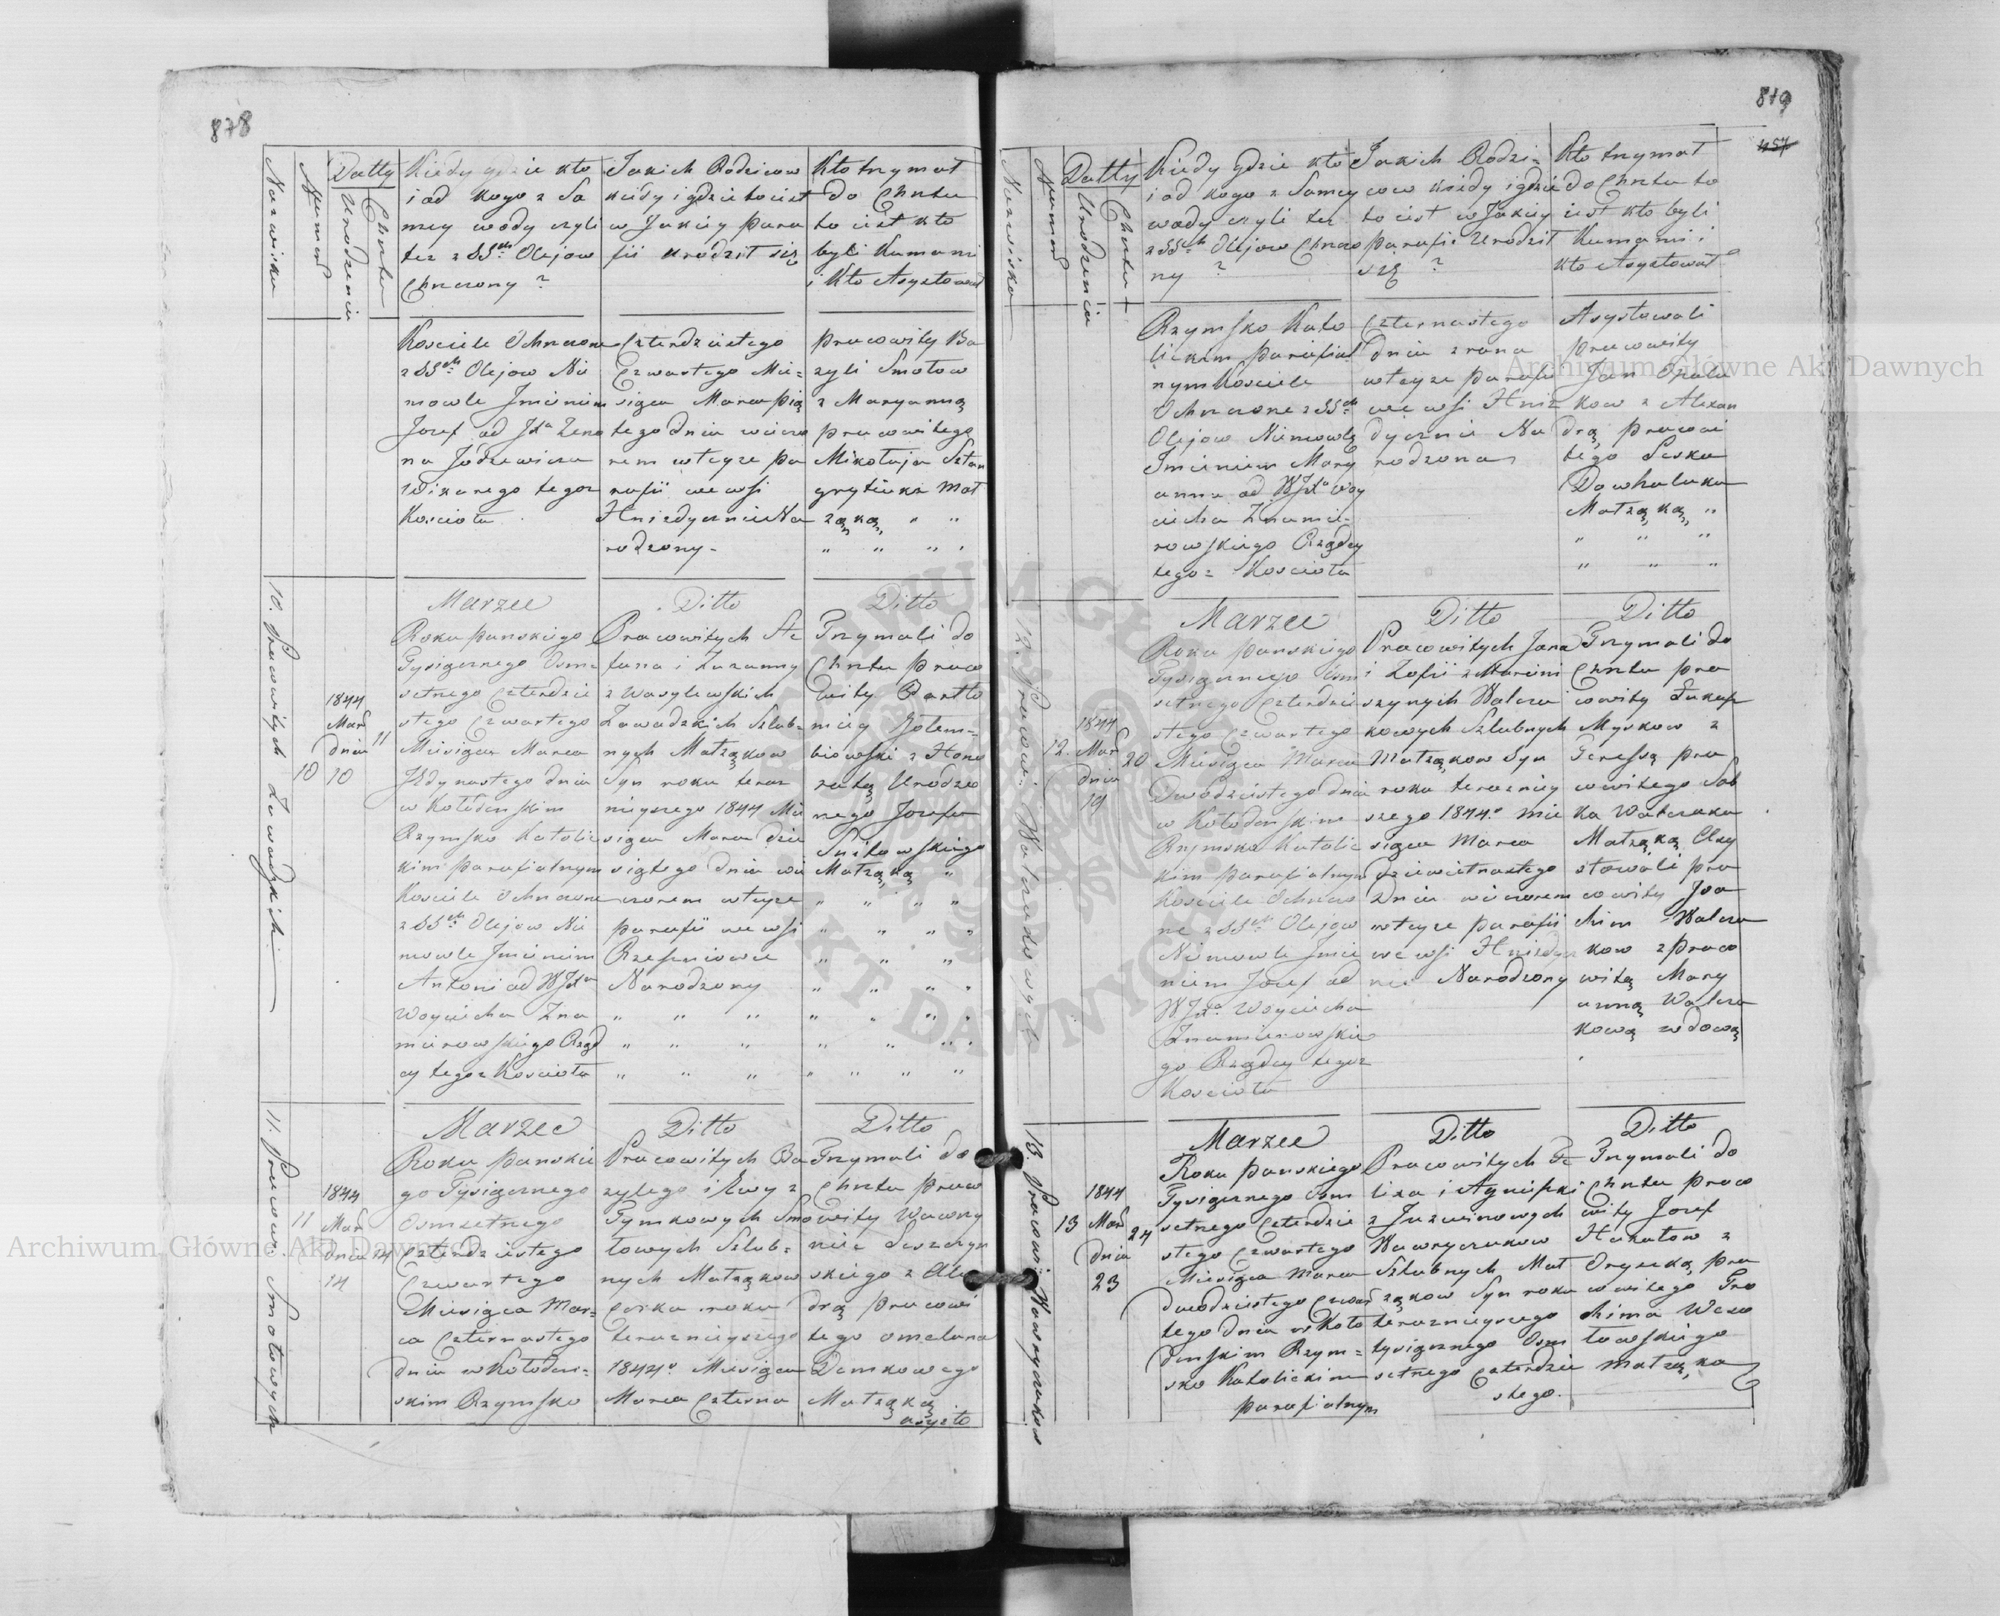 878
Nazwisko
Numer
Datty
Urodzenia
Chrztu
Kiedy gdzie kto
i od kogo z Sa
mey wody czyli
też z SS^ch Olejow
Chrzczony ?
Jakich Rodzicow
kiedy i gdzie to iest
w Jakiey para
fii urodził się
Kto trzymał
do Chrztu
to iest kto
byli Kumami
i Kto Asystował
Kosciele Ochrzczone
z SS^ch Olejow Nie
mowle Imieniem
Jozef od Jx^a Zeno
na Jodzewicza
Wikarego tegoz
Koscioła
Czterdziestego
Czwartego Mie=
siąca Marca pią
tego dnia wieczo
rem w teyze pa
rafii we wsi
Hniedycznie Na
rodzony -
pracowity Ba
zyli Smotow
z Maryanną
pracowitego
Mikołaja Sztan
grytiuka Mał
żąką " "
" " " "
10. Pracowitych Zawadzkich
10
1844
Mar
dnia
10
11
Marzec
Roku pańskiego
Tysiącznego Osm
setnego Czterdzie
stego Czwartego
Miesiąca Marca
Jedynastego dnia
w Kołodenskim
Rzymsko Katolic
kim parafialnym
Kosciele Ochrzczone
z SS^ch Olejow Nie
mowle Imieniem
Antoni od WJx^a
Woyciecha Zna
mierowskiego Rząd
cy tegoz Kosciota
Ditto
Pracowitych Ste
fana i Zuzanny
z Wasylewskich
Zawadzkich Szlub=
nych Małżąkow
Syn roku teraz
nieyszego 1844 Mie
siąca Marca dzie
siątego dnia wie
czorem w teyze
parafii we wsi
Rzesniowce
Narodzony
" " "
" " "
" " "
Ditto
Trzymali do
Chrztu praco
wity Bartło
miey Gołem=
biowski z Hono
ratą Urodzo
nego Jozefa
Sniłowskiego
Małżąką "
" " " "
" " " "
" " "
" " "
" " " "
" " " "
" " " "
11. Pracowi: Smotowych
11
1844
Mar
dnia
14
14
Marzec
Roku pańskie
go Tysiącznego
Osmsetnego
Czterdziestego
Czwartego
Miesiąca Mar=
ca Czternastego
dnia w Kołoden=
skim Rzymsko
Ditto
Pracowitych Ba
zylego i Ewy z
Tymkowych Smo
towych Szlub=
nych Małżąkow
Corka roku
teraznieyszego
1844^o Miesiąca
Marca Czterna
Ditto
Trzymali do
Chrztu praco
wity Wawrzy
niec Leszczyn
skiego z Ale
drą pracowi
tego Omelana
Demkowego
Małżąką
asysto
819
457
Nazwisko
Numer
Datty
Urodzenia
Chrztu
Kiedy gdzie kto
i od kogo z Samey
wody czyli też
z SS^ch Olejow Chrzczo
ny ?
Jakich Rodzi=
cow kiedy i gdzie
to iest w Jakiey
parafii Urodził
się ?
Kto trzymał
do Chrztu to
iest kto byli
Kumami i
kto Asystował
Rzymsko Kato
lickim parafial
nym Kosciele
Ochrzczone z SS^ch
Olejow Niemowlę
Imieniem Mary
anna od WJx^a Woy
ciecha Znamie=
rowskiego Rządcy
tegoz Kosciota
Czternastego
dnia z rana
w teyze parafii
we wsi Hnie
dycznie Na
rodzona
Asystowali
pracowity
Jan Opalu
kow z Alexan
drą pracowi
tego Leska
Dowhaluka
Małżąką "
" " "
" " "
12. Pracowi: Walczakowych
12.
1844
Mar
dnia
19
20
Marzec
Roku Pańskiego
Tysiącznego Osm
setnego Czterdzie
stego Czwartego
Miesiąca Marca
Dwodziestego dnia
w Kołodenskim
Rzymsko Katolic
kim parafialnym
Kosciele Ochrzczo
ne z SS^ch Olejow
Niemowle Imie
niem Jozef od
WJx^a Woyciecha
Znamierowskie
go Rządcy tegoz
Kosciota
Ditto
Pracowitych Jana
i Zofii z Marcini
szynych Walcza
kowych Szlubnych
Małżąkow Syn
roku terazniey
szego 1844^o Mie
siąca Marca
dziewietnastego
Dnia wieczorem
w teyze parafii
we wsi Hniedycz
nie Narodzony
Ditto
Trzymali do
Chrztu pra
cowity Łukasz
Myskow z
Teressą pra
cowitego Sob
ka Walczaka
Małżąką Asy
stowali pra
cowity Joa
chim Walcza
kow z praco
witą Mary
anną Walcza
kową wdową
13. Pracowi: Wawryczukow
13
1844
Mar
dnia
23
24
Marzec
Roku Pańskiego
Tysiącznego Osm
setnego Czterdzie
stego Czwartego
Miesiąca Marca
dwodziestego Czwar
tego dnia w Koło
denskim Rzym=
sko Katolickim
parafialnym
Ditto
Pracowitych Fe
lixa i Agnieszki
z Juzwinowych
Wawryczukow
Szlubnych Mał
żąkow Syn roku
teraznieyszego
tysiącznego Osm
setnego Czterdzie
stego.
Ditto
Trzymali do
Chrztu praco
wity Jozef
Hakatow z
Oryszką pra
cowitego Tro
chima Weso
łowskiego
Małżąką
Archiwum Główne Akt Dawnych
Archiwum Główne Akt Dawnych